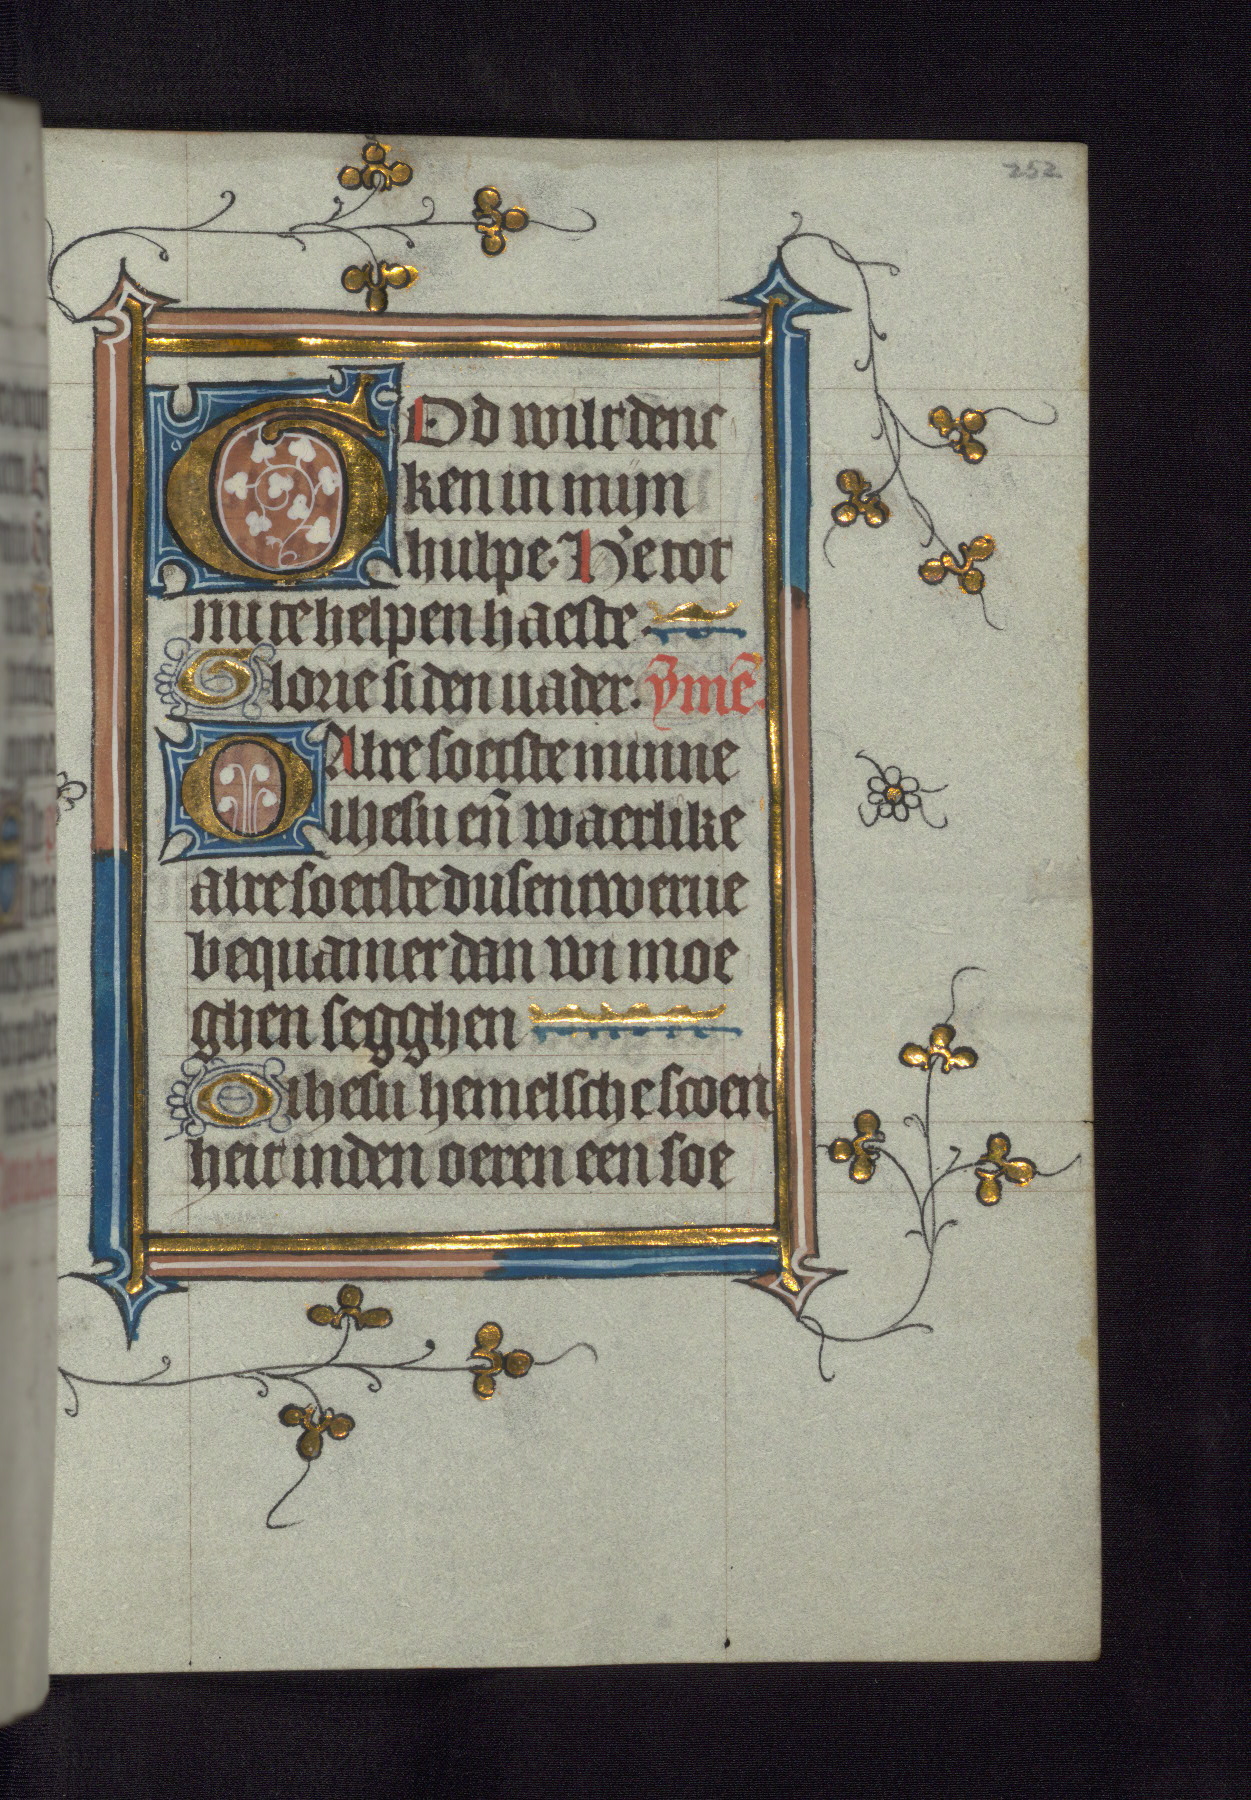 252
GOd wilt denc
ken in mijn
hulpe. Here tot
mi te helpen haeste.
Glorie si den uader. ẏmē.
O Alre soetste minne
ihesu en̄ waerlike
alre soetste dusentwerue
bequamer dan wi moe
ghen segghen
O ihesu hemelsche scoen
heit in den oeren een soe